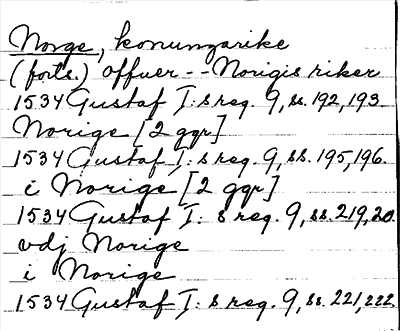 Norge, konungarike
(forts.) offuer -- Norigis riker
1534 Gustaf I:s reg. 9, ss. 192, 193.
Norige [2 ggr]
1534 Gustaf I:s reg. 9, ss. 195, 196.
i Norige [2 ggr]
1534 Gustaf I:s reg. 9, ss. 219, 20.
vdj Norige
i Norige
1534 Gustaf I:s reg. 9, ss. 221, 222